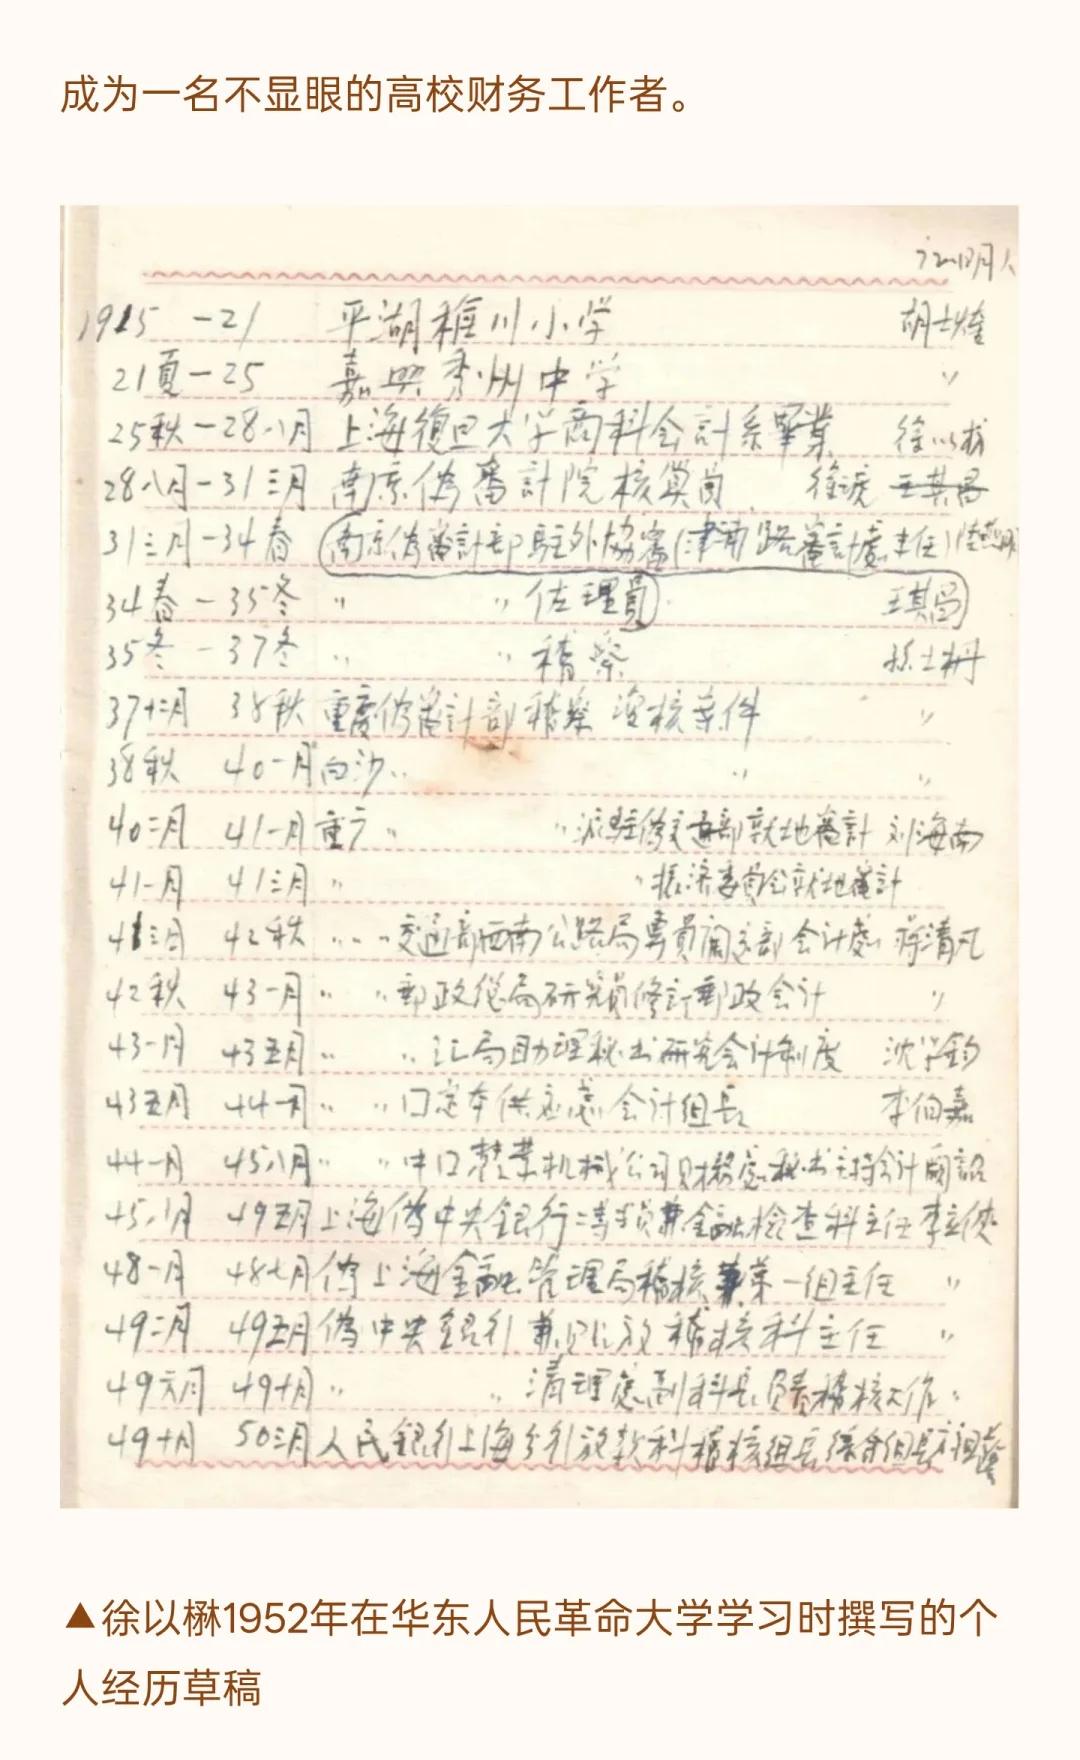 成为一名不显眼的高校财务工作者。
证明人
1915 - 21 平湖稚川小学 胡士煃
21夏 - 25 嘉興秀州中学 〃
25秋 - 28八月 上海復旦大学商科会計系畢業 徐以
28八月 - 31三月 南京偽審計院核算员 徐
31三月 - 34春 南京偽審計部駐外協審(津浦路審計處主任)
34春 - 35冬 〃 〃 佐理員 王琪昌
35冬 - 37冬 〃 〃 稽察 孫士枬
37十二月 38秋 重慶偽審計部稽察 沒核案件 〃
38秋 40一月 白沙〃 〃 〃
40二月 41一月 重广〃 〃派駐偽交通部就地審計 刘海南
41一月 41三月 〃 〃振济委員会就地審計
41三月 42秋 〃 〃 〃交通部西南公路局專員 会计處 蒋清凡
42秋 43一月 〃 〃郵政总局研究員修訂郵政会计 〃
43一月 43五月 〃 〃汇局助理秘书研究会计制度 沈学鈞
43五月 44一月 〃 〃 供应處会计组長 李伯嘉
44一月 45八月 〃 〃中 業机械公司財務處秘书主持会计
45八月 49五月 上海偽中央銀行 兼金融检查科主任 李立俠
48一月 48七月 偽上海金融管理局稽核兼第一组主任 〃
49二月 49五月 偽中央銀行兼 放稽核科主任 〃
49六月 49十月 〃 〃清理處副科長負責稽核工作 〃
49十月 50三月 人民銀行上海分行放款科稽核组長综合组長
▲徐以楙1952年在华东人民革命大学学习时撰写的个
人经历草稿